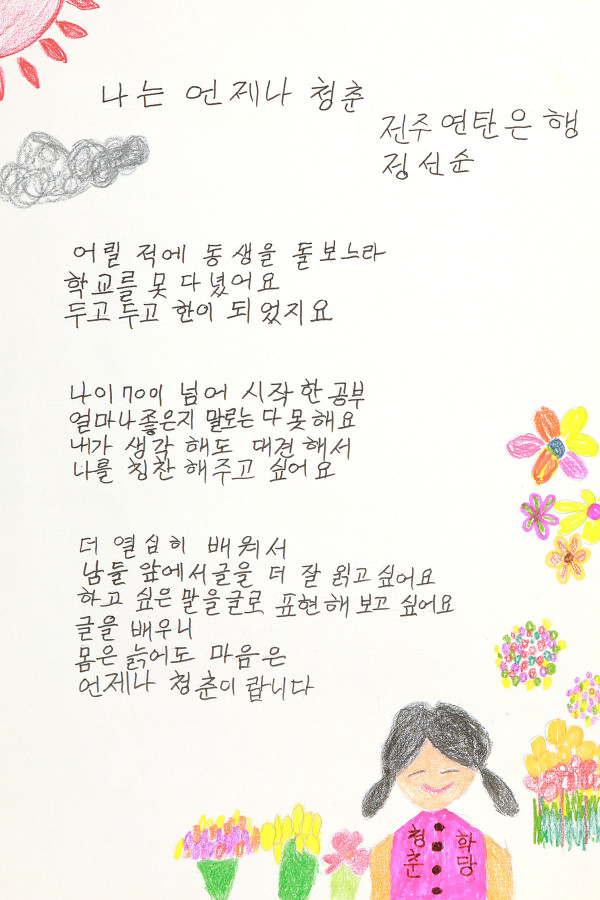 나는 언제나 청춘
전주연탄은행
정선순
어릴 적에 동생을 돌보느라
학교를 못 다녔어요
두고두고 한이 되었지요
나이 70이 넘어 시작한 공부
얼마나 좋은지 말로는 다 못해요
내가 생각해도 대견해서
나를 칭찬해주고 싶어요
더 열심히 배워서
남들 앞에서 글을 더 잘 읽고 싶어요
하고 싶은 말을 글로 표현해 보고 싶어요
글을 배우니
몸은 늙어도 마음은
언제나 청춘이랍니다
청춘
학당